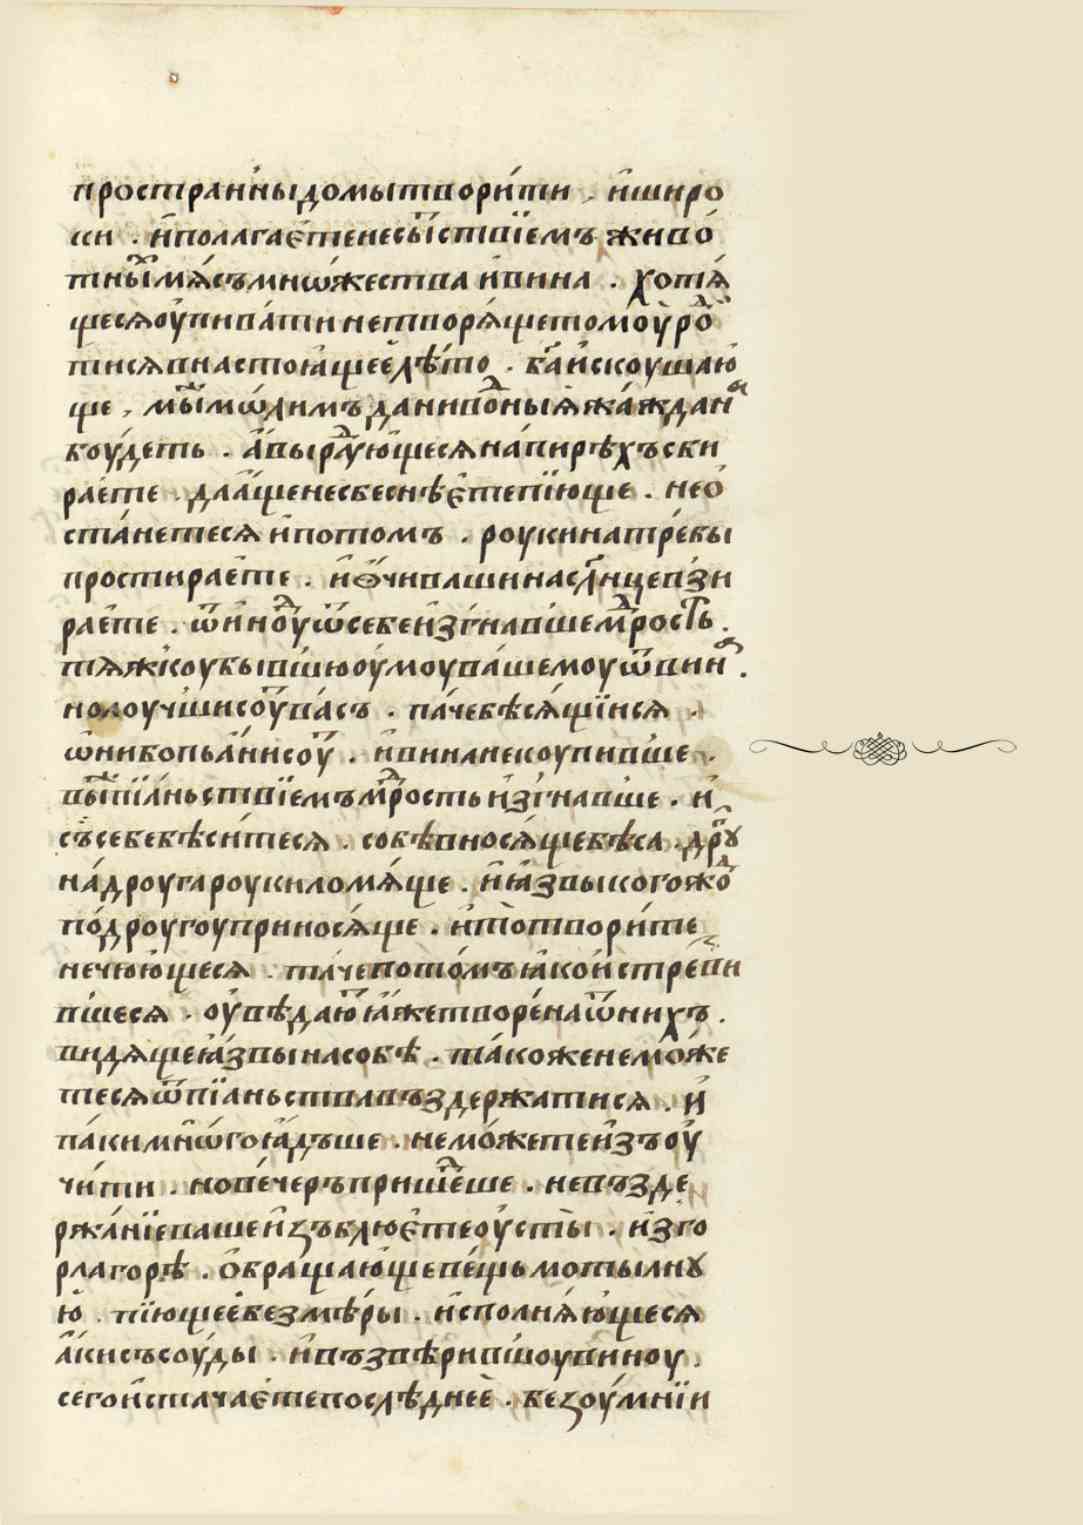 пространныдомытвори́ти . и҆широ
ки . и҆полагае҆тенесы́тствїемъ живо́
тны́мѧ́съмнѡ́жества и҆вина . хотѧ́
щесѧѹ҆пива́ти нетворѧ́щетомоу҆ро́д
тисѧвнастоѧ҆щеелѣ́то . ба҃и҆скоушаю
ще , мы́мѡ́лимъ данивоⷣныѧ҆жа́жда н
боу́деть . а҆выра́дую҆щесѧна́пирѣхъсби
рае́те . дала́щенесбеснѣе҆тепїюще . нео
ста́нетесѧ и҆потомъ . роукинатре́бы
простирае҆те . и҆ѻ҆чивашинасл҃нцевзи
рае́те . ѿи҆ноⷣуѿсебеи҆згнавшемⷣрость .
тѧжкоубывшюѹ҆моува́шемоуѿвин .
нолоучшисоу́тва́съ . па́чебѣсѧ́щїисѧ .
ѡ҆нибопьѧ́нисоу́т . и҆винанекоупивше .
вы́пїа́ньствїемъмⷣростьи҆згнавше . и҆
съсебебѣси́тесѧ . собѣвносѧ́щебѣса . дрꙋ
на́дроугароукиломѧ́ще . и҆ꙗ҆звыкогожо
по́дроугоуприносѧ́ще . и҆то̀твори́те
нечюю́щесѧ . та́чепото́мъꙗ҆кои҆стрезви
вшесѧ . ѹ҆вѣдаю́тꙗ҆жетворе́наѿнихъ .
видѧщеꙗ҆звынасобѣ . та́коженемо́же
тесѧѿпїа́ньствавъздержатисѧ . и҆
па́кимнѡ́гоꙗ҆дъше . немо́жетеи҆зъѹ҆
чи́ти . новечеръприше́дше . невъзде
ржа́нїевашеи҆зъблюе҆теѹ҆сты̀ . и҆зго
рлагорѣ . ѻ҆бращаю́щепе́щьмотылнꙋ
ю҆ . пїющеебезмѣ́ры . и҆сполнѧ́ющесѧ
а҆кисъсоу́ды . и҆възвѣрившоувиноу .
сегои҆стачае҆тепослѣ́днее . безоу́мнїи